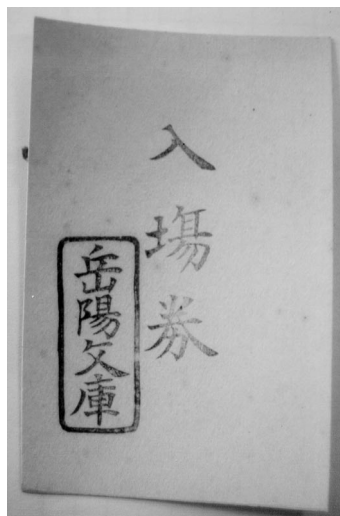 入塲券
岳陽文庫